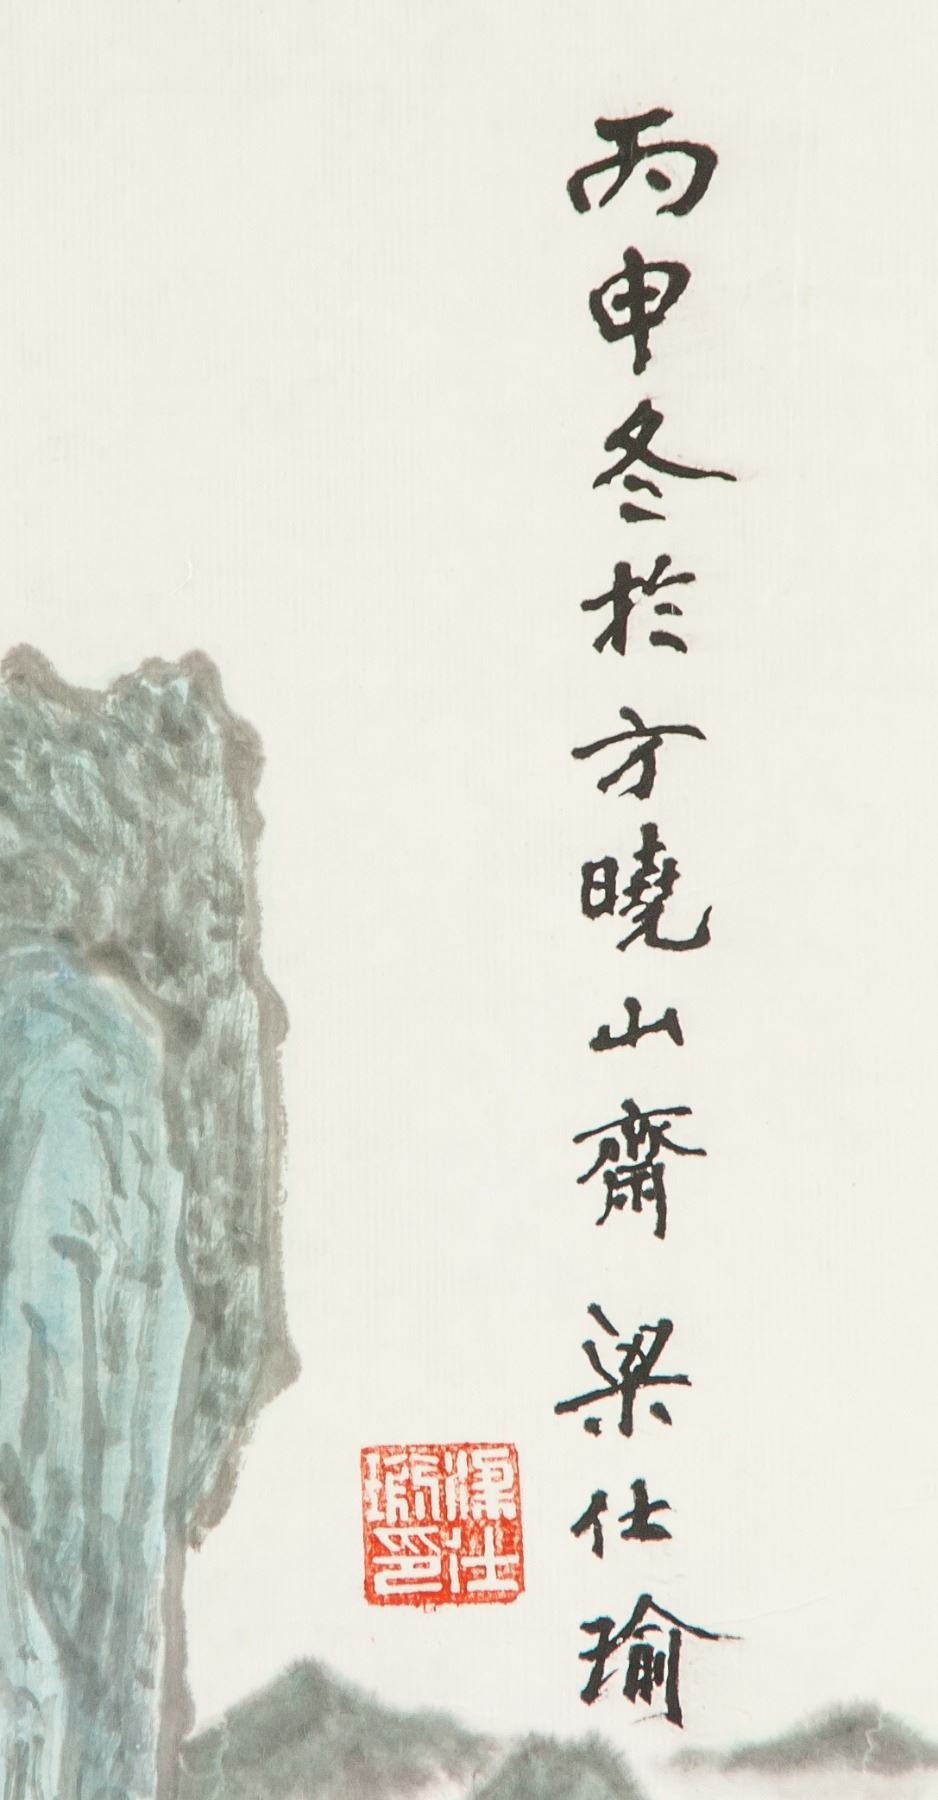 丙申冬於方曉山齋 梁仕瑜
梁仕
瑜印